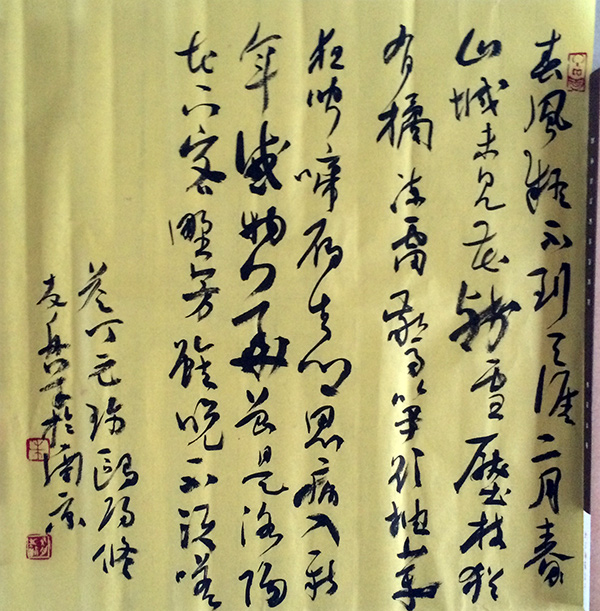 春風疑不到天涯二月春
山城未见花残雪壓枝猶
有橘冻雷驚笋欲抽芽
夜听啼雁生鄉思病入新
年感物華曾是洛陽
花下客野芳雖晚不須嗟
答丁元珍歐陽修
於南京